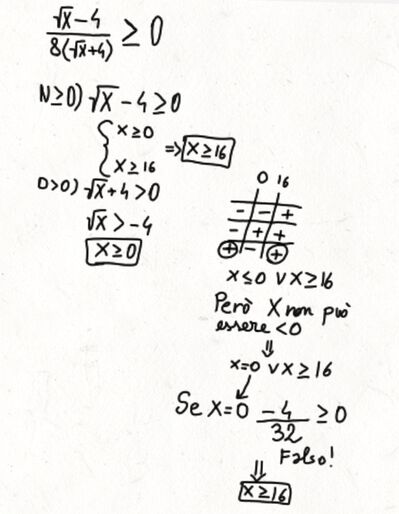 √x-4 / 8(√x+4) ≥ 0
N≥0) √x - 4 ≥ 0
{ x≥0
x≥16 => x≥16
D>0) √x+4>0
√x > -4
x≥0
0 16
- - +
- + +
+ - +
x≤0 ∨ x≥16
Però x non può
essere <0
⇓
x=0 ∨ x≥16
Se x=0 -4/32 ≥ 0
Falso!
⇓
x≥16